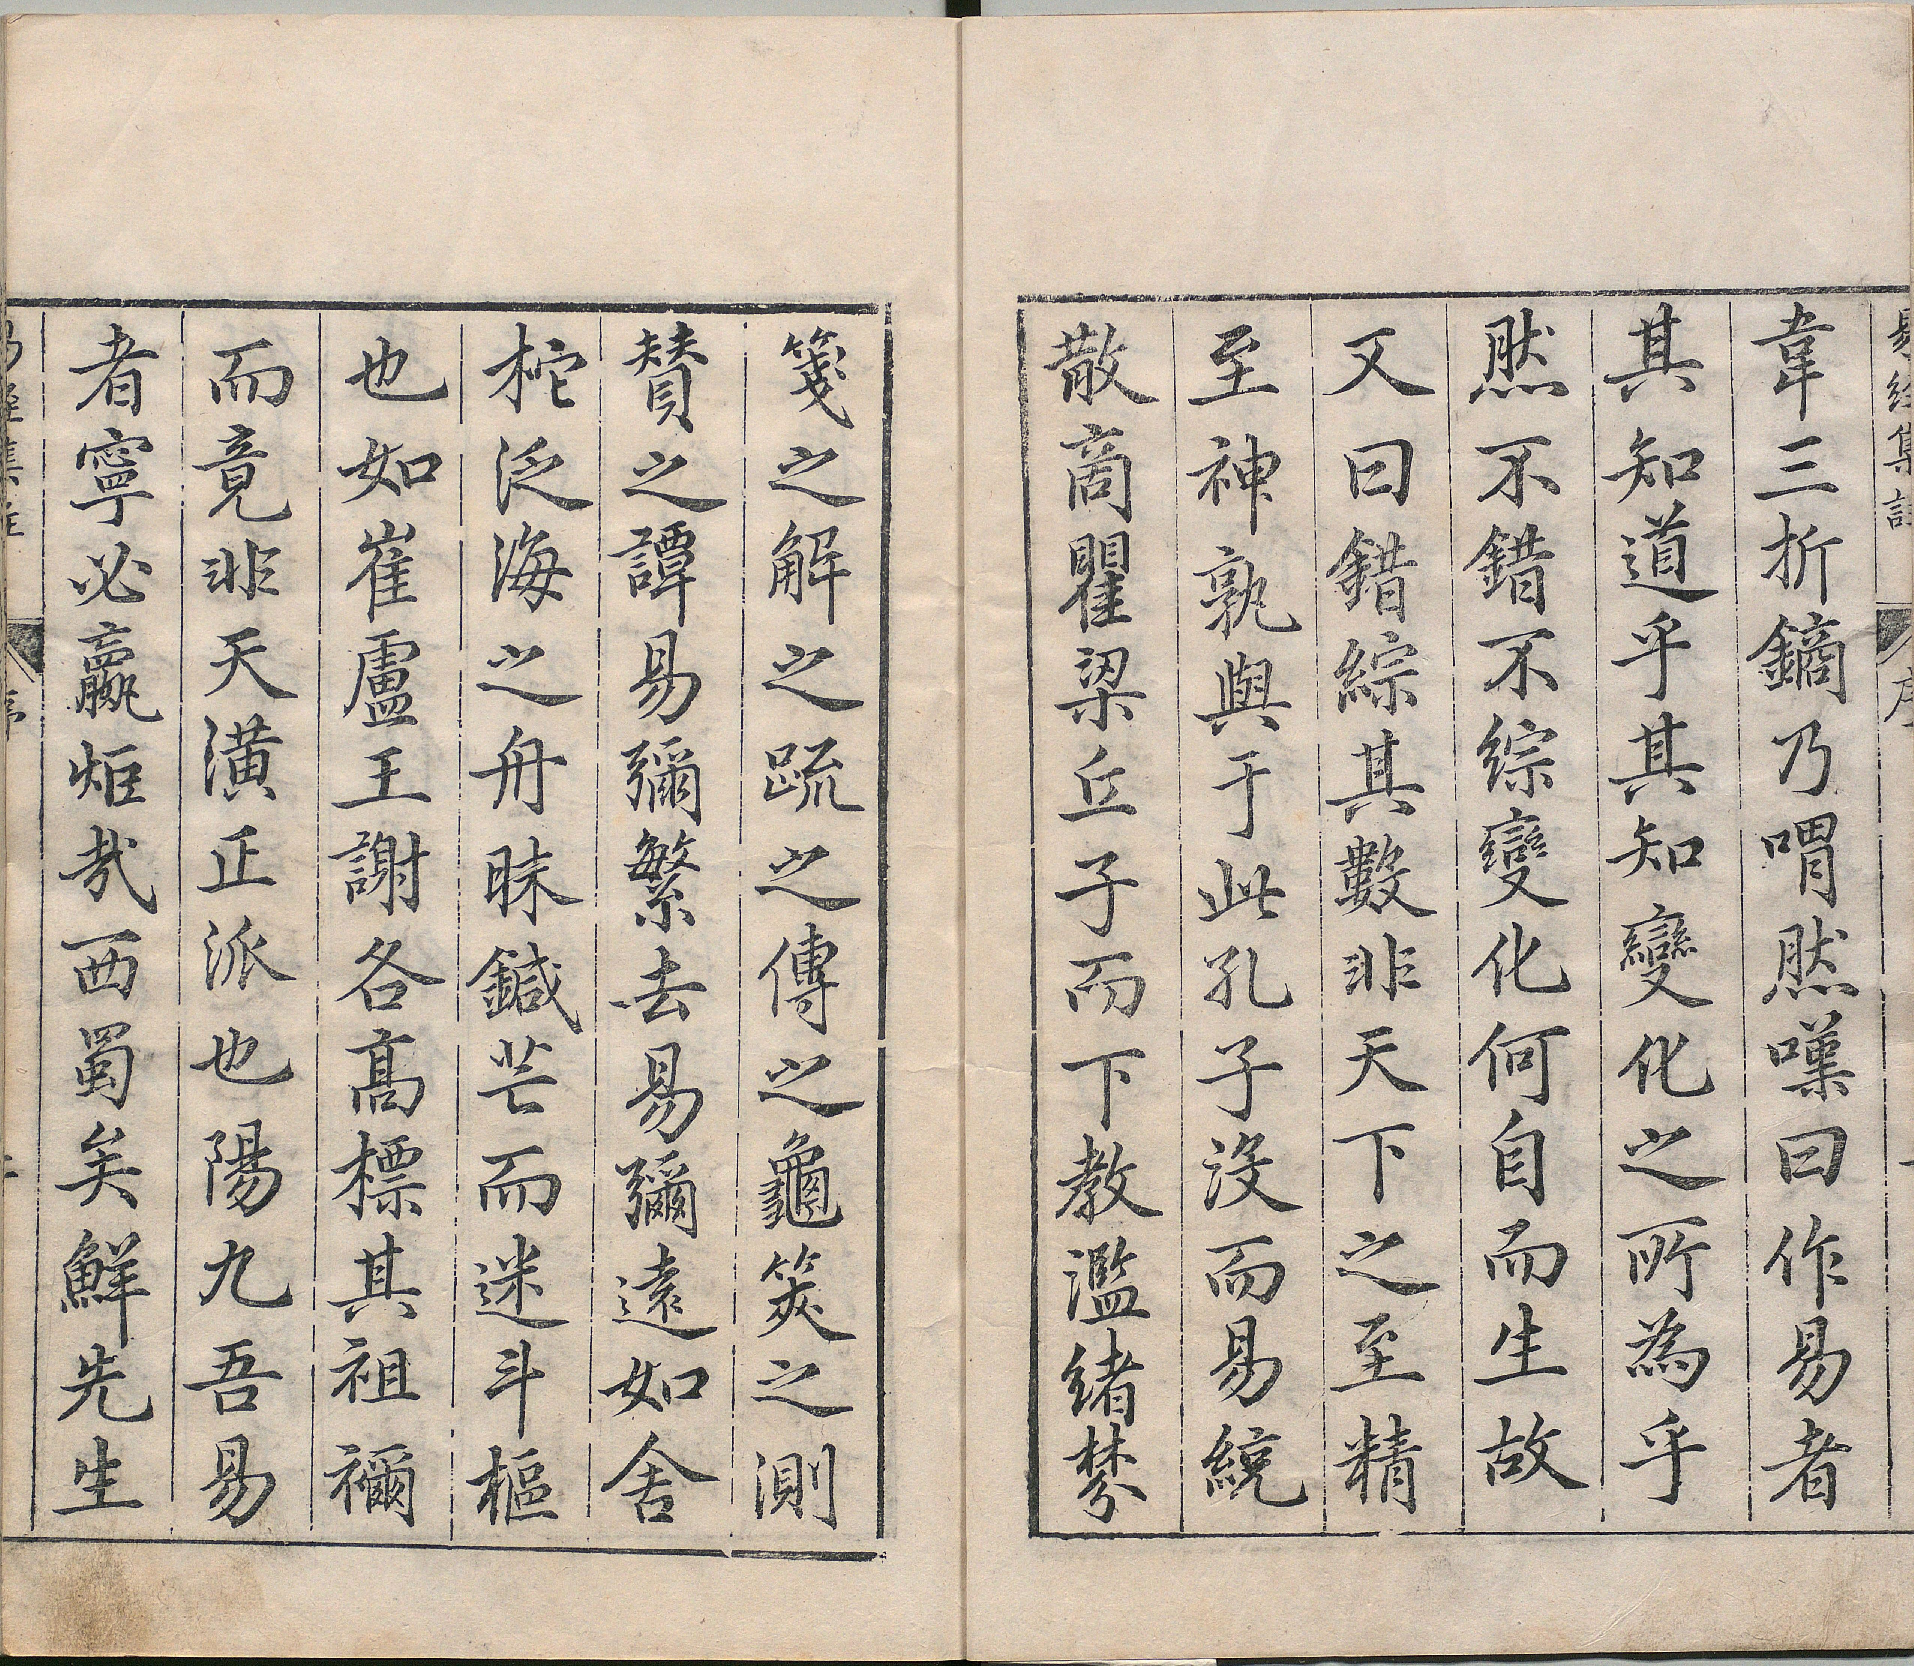 易經集註
序
韋三折鏑乃喟然嘆曰作易者
其知道乎其知變化之所為乎
然不錯不綜變化何自而生故
又曰錯綜其數非天下之至精
至神孰與于此孔子没而易統
散商瞿梁丘子而下教濫緒棼
箋之解之疏之傳之龜筴之測
贊之譚易彌繁去易彌遠如舍
柁泛海之舟昧鍼芒而迷斗樞
也如崔盧王謝各高標其祖禰
而竟非天潢正派也陽九吾易
者寧必嬴炬㢤西蜀矣鮮先生